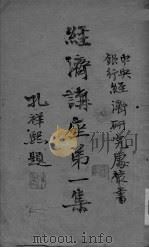 中央銀行經濟研究處叢書
經濟講座第一集
孔祥熙題